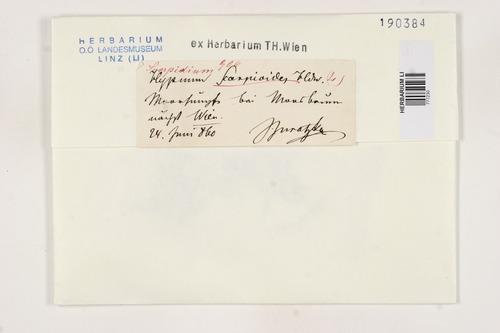 HERBARIUM
O.Ö LANDESMUSEUM
LINZ (LI)
ex Herbarium TH.Wien
190384
HERBARIUM LI
Scorpidium
Hypnum scorpioides
Moorsümpfe bei Moosbrunn
nächst Wien.
24. Juni 860
Juratzka